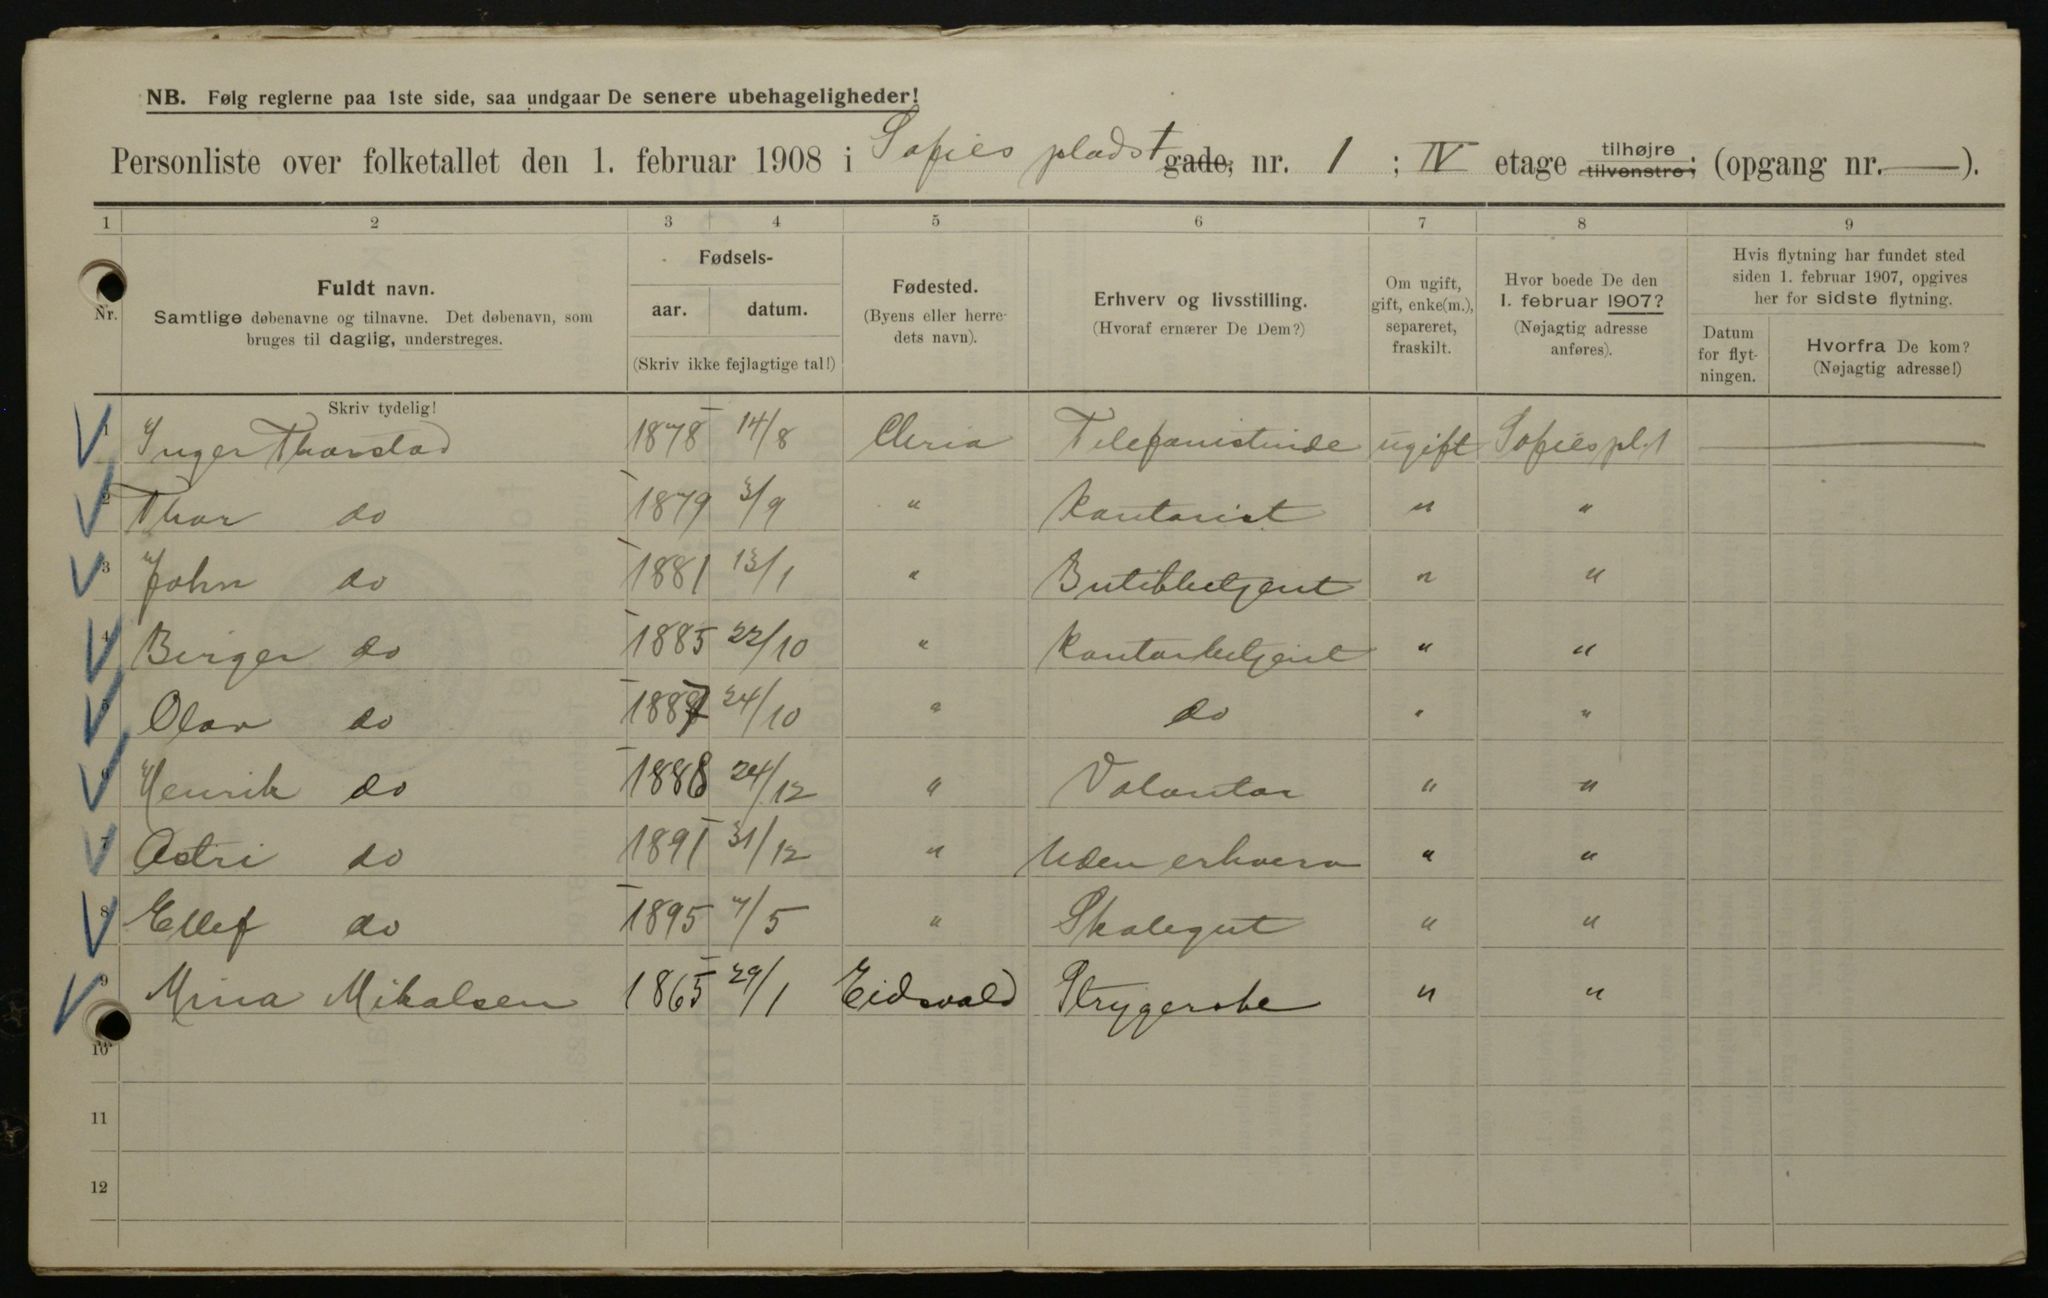 NB. Følg reglerne paa 1ste side, saa undgaar De senere ubehageligheder!
Personliste over folketallet den 1. februar 1908 i Sofies plads gade; nr. 1 ; IV etage tilhøjre tilvenstre; (opgang nr. —).
1 2 3 4 5 6 7 8 9
Nr.
Fuldt navn.
Samtlige døbenavne og tilnavne. Det døbenavn, som
bruges til daglig, understreges.
Fødsels-
aar. datum.
(Skriv ikke fejlagtige tal!)
Fødested.
(Byens eller herre-
dets navn).
Erhverv og livsstilling.
(Hvoraf ernærer De Dem?)
Om ugift,
gift, enke(m.),
separeret,
fraskilt.
Hvor boede De den
1. februar 1907?
(Nøjagtig adresse
anføres).
Hvis flytning har fundet sted
siden 1. februar 1907, opgives
her for sidste flytning.
Datum
for flyt-
ningen.
Hvorfra De kom?
(Nøjagtig adresse!)
Skriv tydelig!
1 Inger Thorstad 1878 14/8 Chria Telefonistinde ugift Sofies pl. 1
2 Thor do 1879 3/9 " Kontorist " "
3 John do 1881 13/1 " Butikbetjent " "
4 Birger do 1885 22/10 " Kontorbetjent " "
5 Olav do 1887 24/10 " do " "
6 Henrik do 1888 24/12 " Volontør " "
7 Astri do 1891 31/12 " Uden erhverv " "
8 Ellef do 1895 7/5 " Skolegut " "
9 Mina Mikalsen 1865 29/1 Eidsvold Strygerske " "
10
11
12